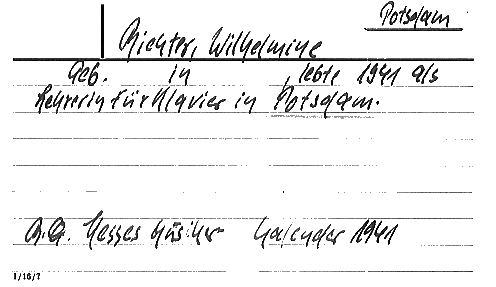 Potsdam
Richter, Wilhelmine
Geb. in , lebte 1941 als
Lehrerin für Klavier in Potsdam.
Hesses Musiker Kalender 1941
1/16/7